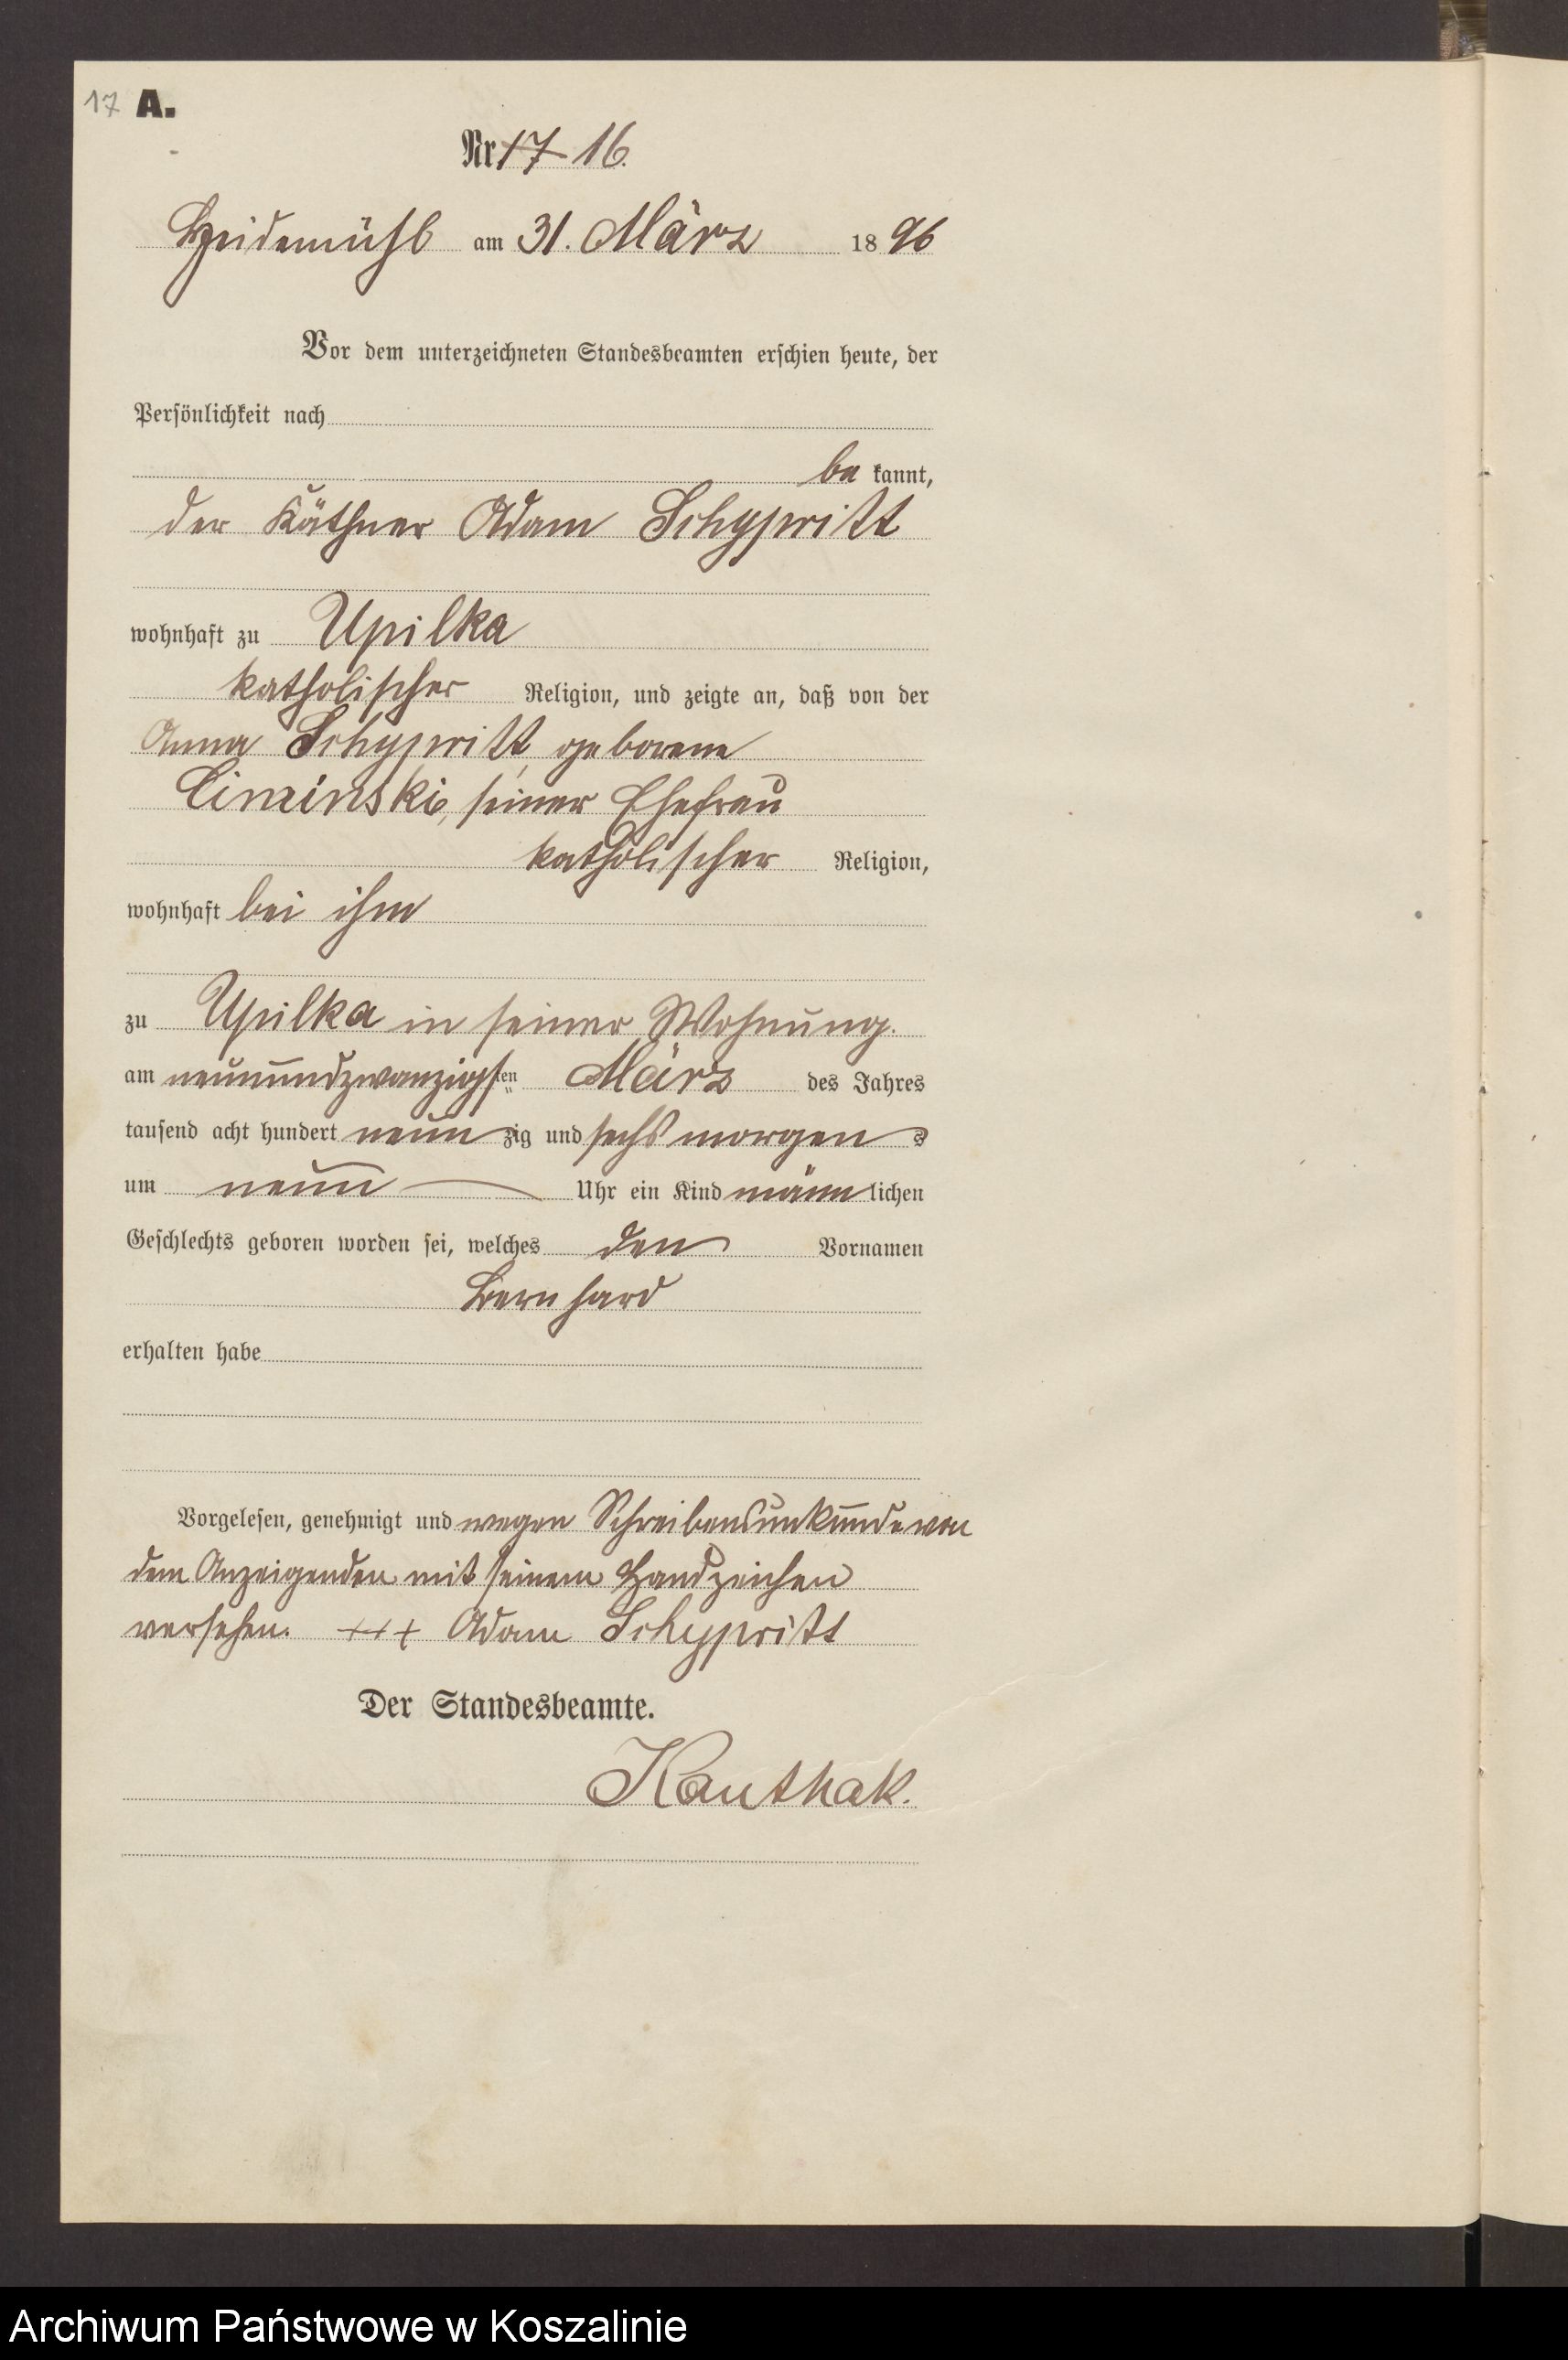 17 A.
Nr 17 16.
Heidemühl am 31. März 1896
Vor dem unterzeichneten Standesbeamten erschien heute, der
Persönlichkeit nach
be kannt,
der Käthner Adam Schypritt
wohnhaft zu Upilka
katholischer Religion, und zeigte an, daß von der
Anna Schypritt, geborene
Ciminski, seiner Ehefrau
katholischer Religion,
wohnhaft bei ihm
zu Upilka in seiner Wohnung.
am neunundzwanzigsten März des Jahres
tausend acht hundert neunzig und sechs morgens
um neun Uhr ein Kind männlichen
Geschlechts geboren worden sei, welches den Vornamen
Bernhard
erhalten habe
Vorgelesen, genehmigt und wegen Schreibensunkunde von
dem Anzeigenden mit seinem Handzeichen
versehen. +++ Adam Schypritt
Der Standesbeamte.
Kauthak.
Archiwum Państwowe w Koszalinie